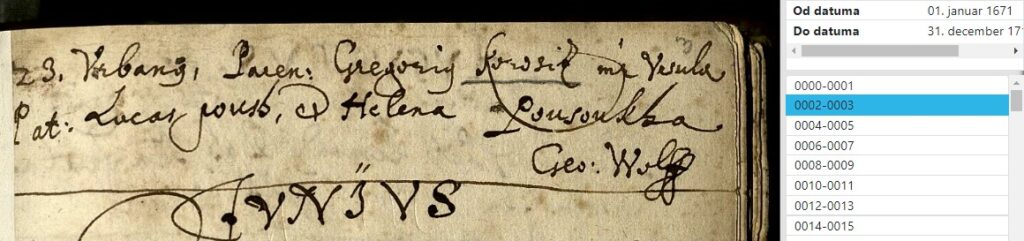 23. Vrbanus, Paren: Gregorius Korosiz mr Vrsula
Pat: Lucas pousk, et Helena Pousoukka
Geo: Wolff
IVNIVS
Od datuma 01. januar 1671
Do datuma 31. december 17
0000-0001
0002-0003
0004-0005
0006-0007
0008-0009
0010-0011
0012-0013
0014-0015